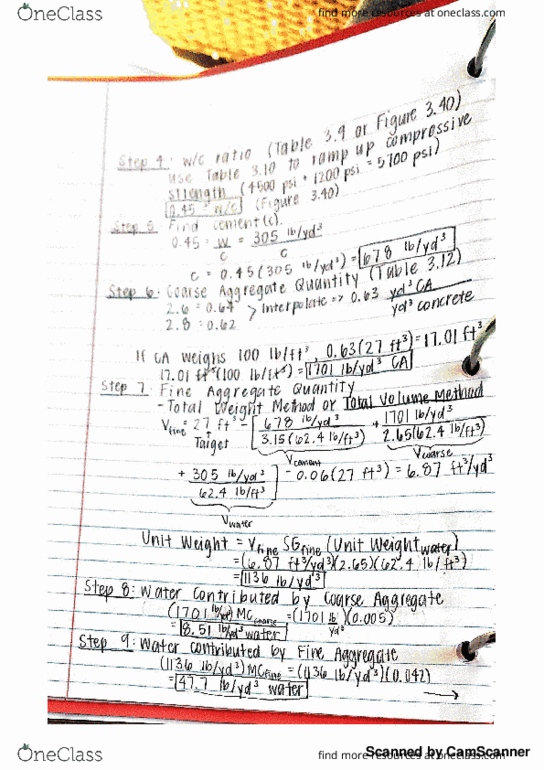 OneClass
find more resources at oneclass.com
Step 4: w/c ratio (Table 3.9 or Figure 3.40)
use Table 3.10 to ramp up compressive
strength (4500 psi + 1200 psi = 5700 psi)
0.45 = w/c (Figure 3.40)
Step 5 Find cement (c).
0.45 = w/c = 305 lb/yd³ / c
c = 0.45(305 lb/yd³) = 678 lb/yd³
Step 6: Coarse Aggregate Quantity (Table 3.12)
2.6 = 0.64 > Interpolate => 0.63 yd³ CA
2.8 = 0.62 yd³ concrete
If CA weighs 100 lb/ft³, 0.63(27 ft³) = 17.01 ft³
17.01 ft³(100 lb/ft³) = 1701 lb/yd³ CA
Step 7: Fine Aggregate Quantity
- Total Weight Method or Total Volume Method
V fine = 27 ft³ - [ 678 lb/yd³ / 3.15(62.4 lb/ft³) + 1701 lb/yd³ / 2.65(62.4 lb/ft³)
Target V cement V coarse
+ 305 lb/yd³ / 62.4 lb/ft³ ] - 0.06(27 ft³) = 6.87 ft³/yd³
V water
Unit Weight = V fine SG fine (Unit Weight water)
= (6.87 ft³/yd³)(2.65)(62.4 lb/ft³)
= 1136 lb/yd³
Step 8: Water Contributed by Coarse Aggregate
(1701 lb/yd³) MC coarse = (1701 lb/yd³)(0.005)
= 8.51 lb/yd³ water
Step 9: Water contributed by Fine Aggregate
(1136 lb/yd³) MC fine = (1136 lb/yd³)(0.042)
= 47.7 lb/yd³ water →
OneClass
find more resources at oneclass.com
Scanned by CamScanner